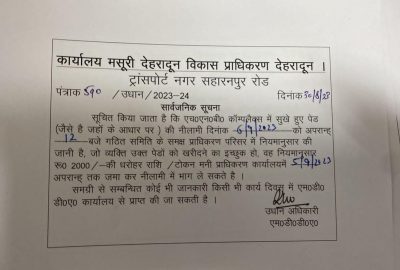 कार्यालय मसूरी देहरादून विकास प्राधिकरण देहरादून ।
ट्रांसपोर्ट नगर सहारनपुर रोड
पंत्राक 590 /उधान/2023-24 दिनांक 30/8/23
सार्वजनिक सूचना
सूचित किया जाता है कि एच०एन०बी० कॉम्पलैक्स में सुखे हुए पेड
(जैसे है जहाँ के आधार पर ) की नीलामी दिनांक 6/9/2023 को अपरान्ह
12 बजे गठित समिति के समक्ष प्राधिकरण परिसर में नियमानुसार की
जानी है, जो व्यक्ति उक्त पेडों को खरीदने का इच्छुक हो, वह नियमानुसार
रू0 2000/-की धरोहर राशि /टोकन मनी प्राधिकरण कार्यालयमें 5/9/2023
अपरान्ह तक जमा कर नीलामी में भाग ले सकते है ।
समग्री से सम्बन्धित कोई भी जानकारी किसी भी कार्य दिवस में एम०डी०
डी०ए० कार्यालय से प्राप्त की जा सकती है ।
उधान अधिकारी
एम०डी०डी०ए०